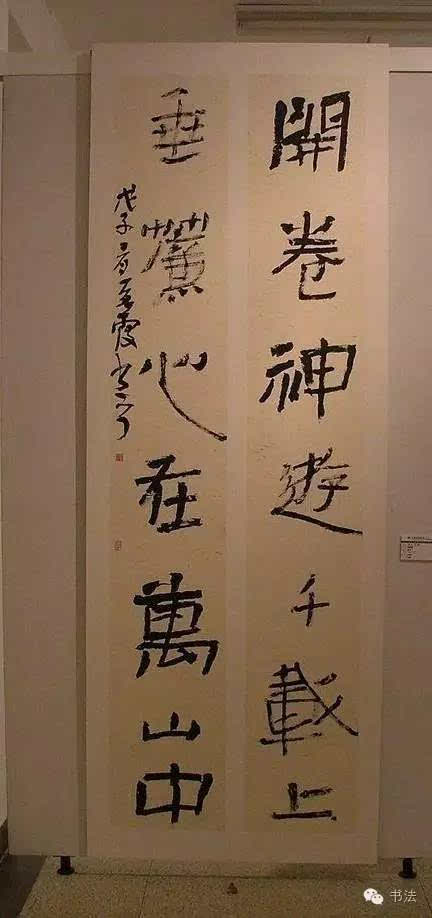 開卷神遊千載上
垂簾心在萬山中
戊子
书法